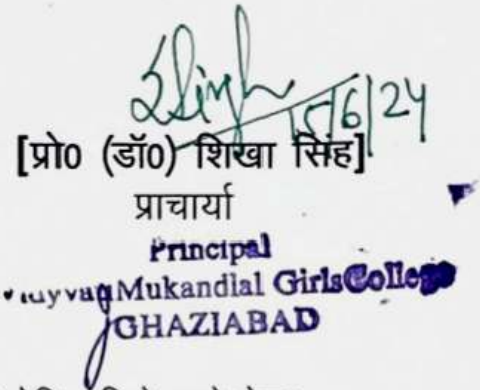 Singh
15/6/24
[प्रो0 (डॉ0) शिखा सिंह]
प्राचार्या
Principal
Mukandlal Girls College
GHAZIABAD